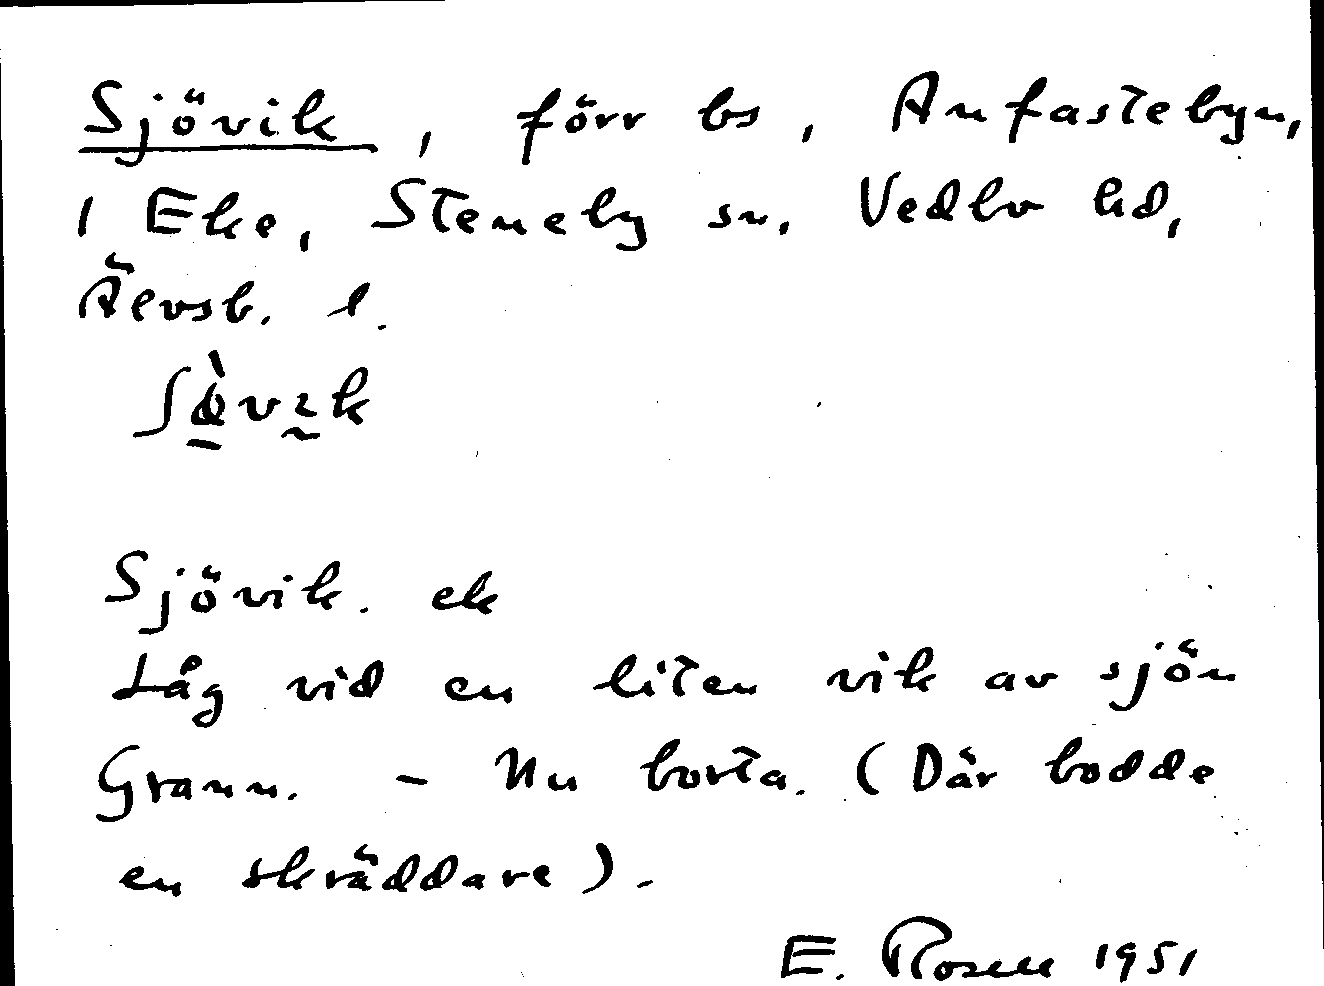 Sjövik, förr bs, Anfastebyn,
1 Eke, Steneby sn, Vedbo hd,
Älvsb. l.
Sjövik. ek
Låg vid en liten vik av sjön
Grann. - Nu borta. (Där bodde
en skräddare).
E. Rosell 1951